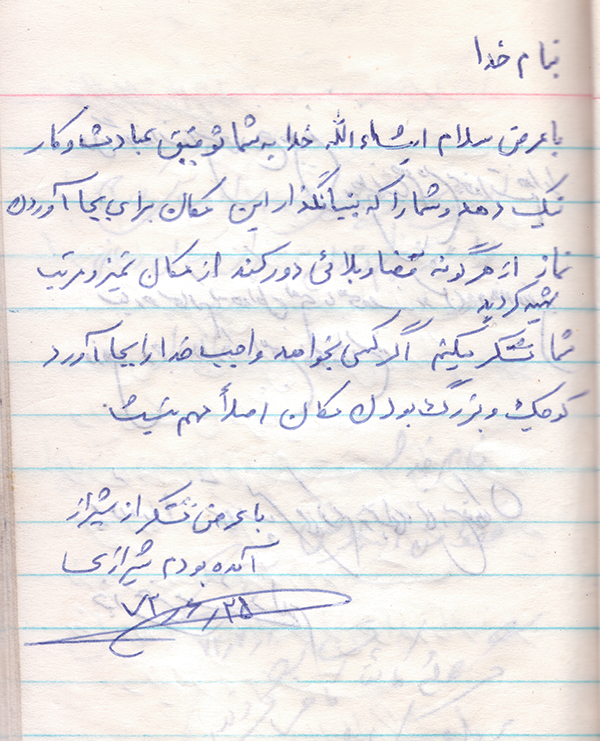 بنام خدا
با عرض سلام انشاءالله خدا به شما توفیق عبادت و کار
نیک دهد و شما را که بنیانگذار این مکان برای بجا آوردن
نماز از هرگونه قضا و بلائی دور کند از مکان تمیز و مرتب
تهیه کردید
شما تشکر میکنم اگر کسی بخواهد واجب خدا را بجا آورد
کوچک و بزرگ بودن مکان اصلاً مهم نیست.
با عرض تشکر از شیراز
آمده بودم شیرازی